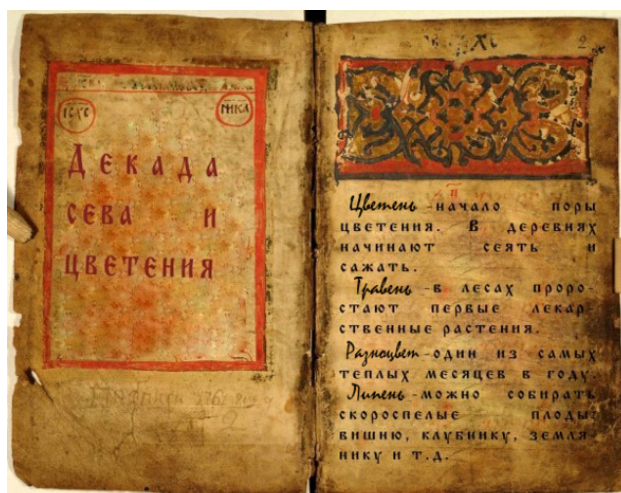 ІС ХС
НИКА
Декада
сева и
цветения
2
Цветень -начало поры
цветения. В деревнях
начинают сеять и
сажать.
Травень -в лесах пророс-
стают первые лекар-
ственные растения.
Разноцвет -один из самых
теплых месяцев в году.
Липень -можно собирать
скороспелые плоды:
вишню, клубнику, земля-
нику и т.д.